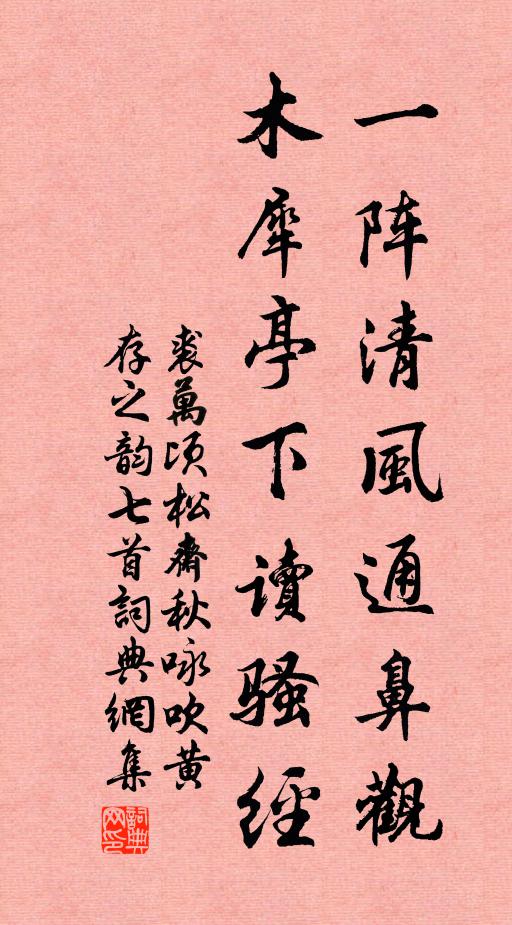 一阵清風通鼻觀
木犀亭下读騷經
裘萬顷松齋秋咏吹黄
存之韵七首詞典網集
詞典网印